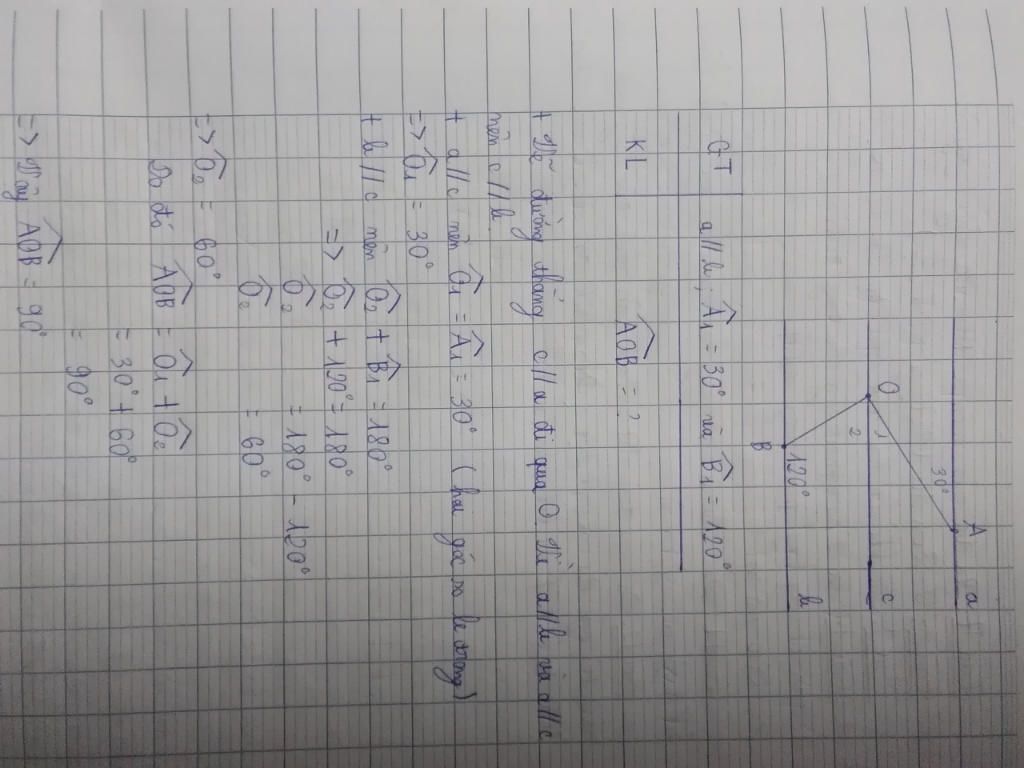 A
a
30°
O
1
2
c
120°
B
b
GT
a//b; Â1 = 30° và B̂1 = 120°
KL
AOB̂ = ?
+ Vẽ đường thẳng c//a đi qua O. Vì a//b và a//c
nên c//b
+ a//c nên Ô1 = Â1 = 30° (hai góc so le trong)
=> Ô1 = 30°
+ b//c nên Ô2 + B̂1 = 180°
=> Ô2 + 120° = 180°
Ô2 = 180° - 120°
Ô2 = 60°
=> Ô2 = 60°
Do đó AOB̂ = Ô1 + Ô2
= 30° + 60°
= 90°
=> Vậy AOB̂ = 90°